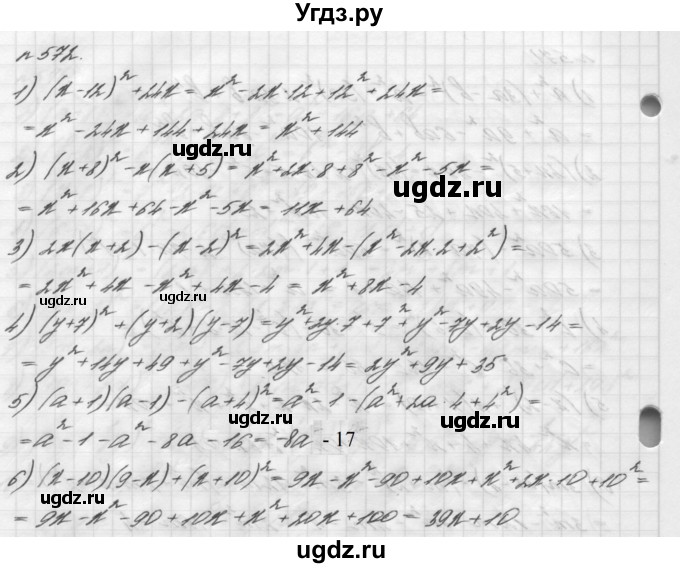 Угдз.ру
n 572.
1) (x-12)² + 24x = x² - 2x·12 + 12² + 24x =
= x² - 24x + 144 + 24x = x² + 144
ugdz.ru
2) (x+8)² - x(x+5) = x² + 2x·8 + 8² - x² - 5x =
ugdz.ru
= x² + 16x + 64 - x² - 5x = 11x + 64
3) 2x(x+2) - (x-2)² = 2x² + 4x - (x² - 2x·2 + 2²) =
= 2x² + 4x - x² + 4x - 4 = x² + 8x - 4
ugdz.ru
ugdz.ru
4) (y+7)² + (y+2)(y-7) = y² + 2y·7 + 7² + y² - 7y + 2y - 14 =
= y² + 14y + 49 + y² - 7y + 2y - 14 = 2y² + 9y + 35
5) (a+1)(a-1) - (a+4)² = a² - 1 - (a² + 2a·4 + 4²) =
ugdz.ru
= a² - 1 - a² - 8a - 16 = -8a - 17
6) (x-10)(9-x) + (x+10)² = 9x - x² - 90 + 10x + x² + 2x·10 + 10² =
ugdz.ru
= 9x - x² - 90 + 10x + x² + 20x + 100 = 39x + 10
ugdz.ru
ugdz.ru